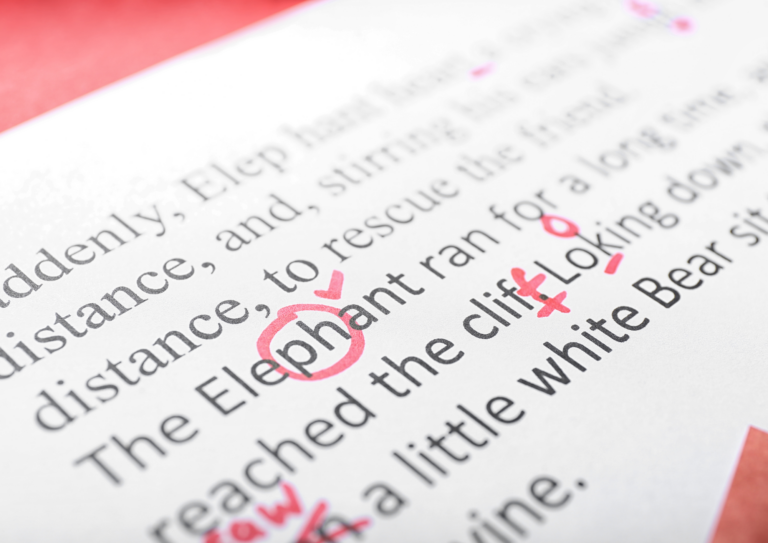 addenly, Elep hant heart a
distance, and, stirring his
distance, to rescue the friend
The Elephant ran for a long time,
reached the clif. Loking down,
a little white Bear sit
vine.
f
o
raw